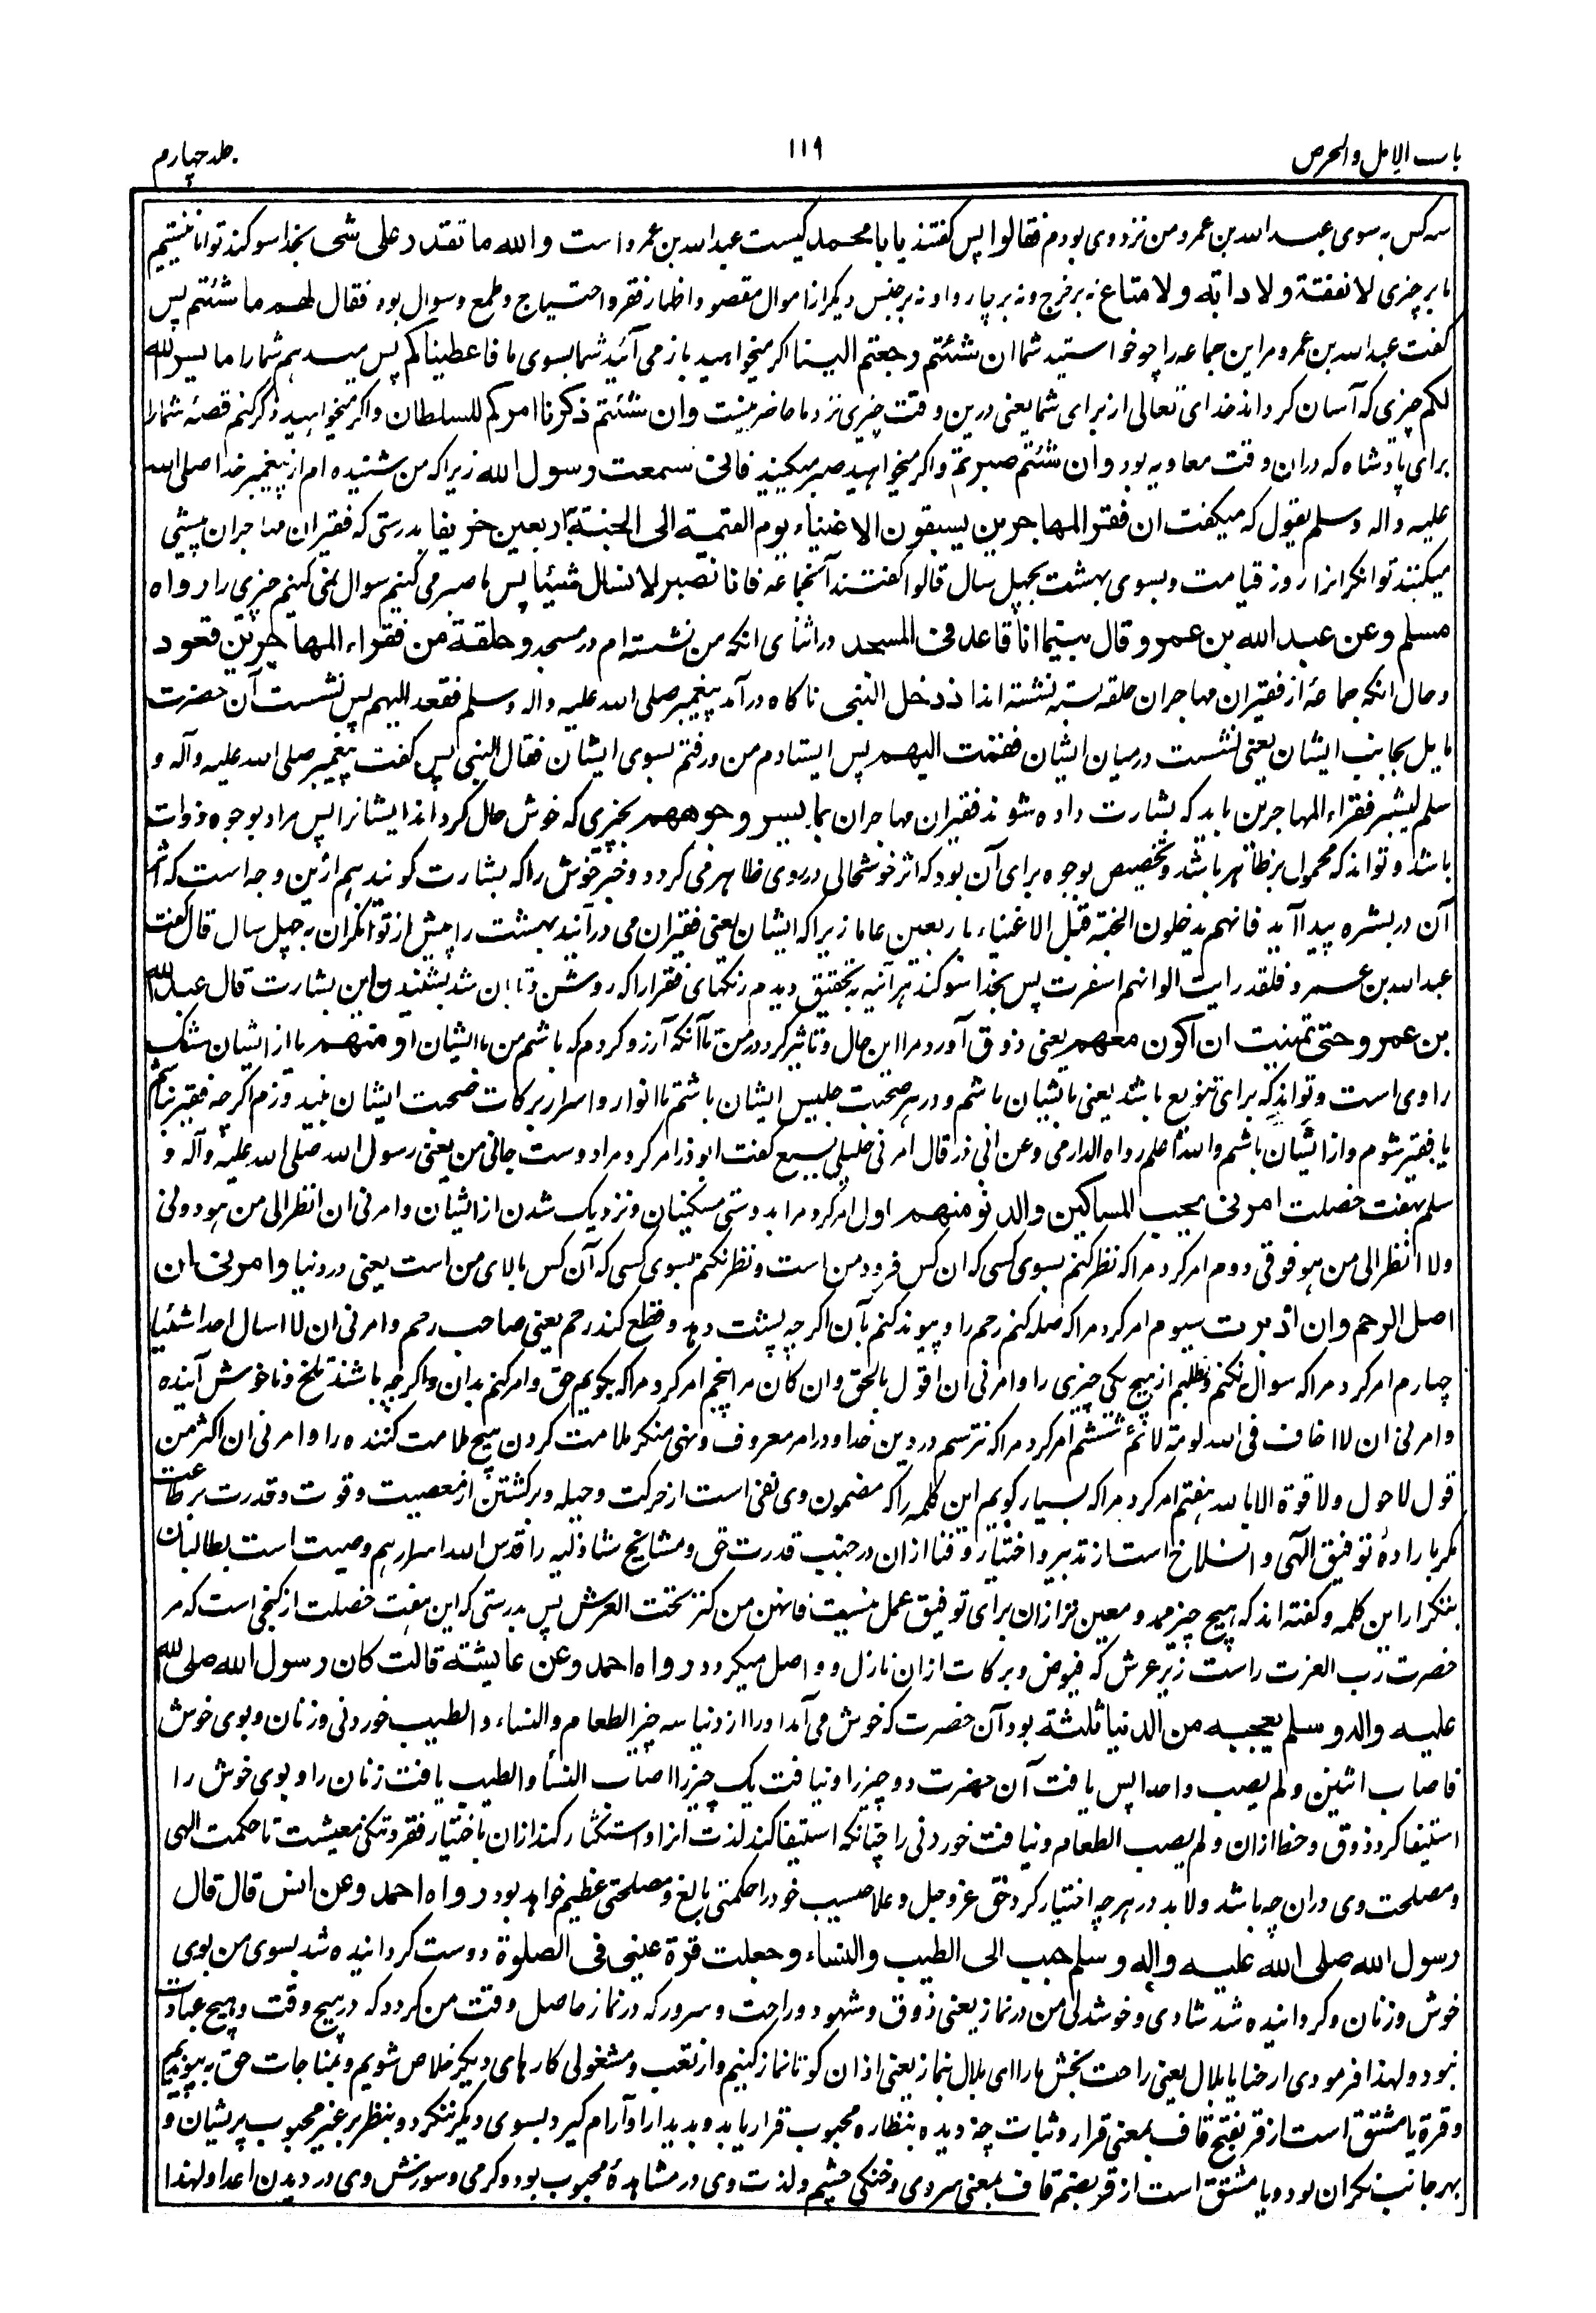 باب الامل والحرص
۱۱۹
جلد چهارم
سه کس به سوی عبد الله بن عمرو من نزد وی بودم فقالوا پس گفتند یا با محمد کنیت عبد الله بن عمرو است والله ما نقدر علی شیء بخدا سوگند توانا نیستیم
ما بر چیزی لا نفقة ولا دابة ولا متاع نه بر خرج و نه بر چاروا و نه بر جنس دیگر از اموال مقصود اظهار فقر و احتیاج و طمع و سوال بود فقال لهم ما شئتم پس
گفت عبد الله بن عمرو مر این جماعه را چه خواستید شما ان شئتم رجعتم الینا اگر میخواهید باز می آئید شما بسوی ما فاعطیناکم پس میدهیم شما را ما یسر الله
لکم چیزی که آسان کرداند خدای تعالی از برای شما یعنی درین وقت چیزی نزد ما حاضر نیست وان شئتم ذکرنا امرکم للسلطان و اگر میخواهید ذکر کنم قصهٔ شما را
برای پادشاه که دران وقت معاویه بود وان شئتم صبرتم و اگر میخواهید صبر میکنید فانی سمعت رسول الله زیرا که من شنیده ام از پیغمبر خدا صلی الله
علیه واله وسلم یقول که میگفت ان فقرا المهاجرین یسبقون الاغنیاء یوم القیمة الی الجنة باربعین خریفا بدرستی که فقیران مهاجران پیشی
میکنند توانگرانرا روز قیامت و بسوی بهشت بچهل سال قالوا گفتند آنجماعه فانا نصبر لا نسال شیئا پس ما صبر می کنیم سوال نمی کنیم چیزی را رواه
مسلم وعن عبد الله بن عمرو قال بینما انا قاعد فی المسجد در اثنای آنکه من نشسته ام در مسجد و حلقة من فقراء المهاجرین قعود
و حال آنکه جماعهٔ از فقیران مهاجران حلقه بسته نشسته اند اذ دخل النبی ناگاه در آمد پیغمبر صلی الله علیه واله وسلم فقعد الیهم پس نشست آن حضرت
مایل بجانب ایشان یعنی نشست درمیان ایشان فقمت الیهم پس ایستادم من و رفتم بسوی ایشان فقال النبی پس گفت پیغمبر صلی الله علیه وآله و
سلم لیبشر فقراء المهاجرین باید که بشارت داده شوند فقیران مهاجران بما یسر وجوههم بچیزی که خوش حال گرداند ایشانرا پس مراد بوجوه ذوات
باشد و تواند که محمول بر ظاهر باشد و تخصیص بوجوه برای آن بود که اثر خوشحالی در روی ظاهر می گردد و خبر خوش را که بشارت گویند هم ازین وجه است که اثر
آن در بشره پیدا آید فانهم یدخلون الجنة قبل الاغنیاء باربعین عاما زیرا که ایشان یعنی فقیران می در آیند بهشت را پیش از توانگران به چهل سال قال گفت
عبد الله بن عمرو فلقد رایت الوانهم اسفرت پس بخدا سوگند هر آئینه به تحقیق دیدم رنگهای فقرا را که روشن و تابان شد بشنیدن این بشارت قال عبد الله
بن عمرو حتی تمنیت ان اکون معهم یعنی ذوق آورد مرا این حال و تاثیر کرد در من تا آنکه آرزو کردم که باشم من با ایشان او منهم یا از ایشان شک
راوی است و تواند که برای تنویع باشد یعنی با ایشان باشم و در هر صحبت جلیس ایشان باشم تا انوار و اسرار برکات صحبت ایشان بیندوزم اگرچه فقیر نباشم
یا فقیر شوم و از ایشان باشم والله اعلم رواه الدارمی وعن ابی ذر قال امرنی خلیلی بسبع گفت ابوذر امر کرد مرا دوست جانی من یعنی رسول الله صلی الله علیه وآله و
سلم بهفت خصلت امرنی بحب المساکین والدنو منهم اول امر کرد مرا بدوستی مسکینان و نزدیک شدن از ایشان وامرنی ان انظر الی من هو دونی
ولا انظر الی من هو فوقی دوم امر کرد مرا که نظر کنم بسوی کسی که ان کس فرود من است و نظر نکنم بسوی کسی که آن کس بالای من است یعنی در دنیا وامرنی ان
اصل الرحم وان ادبرت سیوم امر کرد مرا که صله کنم رحم را و پیوند کنم بآن اگرچه پشت دهد و قطع کند رحم یعنی صاحب رحم وامرنی ان لا اسال احدا شیئا
چهارم امر کرد مرا که سوال نکنم و نطلبم از هیچ یکی چیزی را وامرنی ان اقول بالحق وان کان مرا پنجم امر کرد مرا که بگویم حق و امر کنم بدان و اگرچه باشد تلخ و ناخوش آینده
وامرنی ان لا اخاف فی الله لومة لائم ششم امر کرد مرا که نترسم در دین خدا و در امر معروف و نهی منکر ملامت کردن هیچ ملامت کننده را وامرنی ان اکثر من
قول لا حول ولا قوة الا بالله هفتم امر کرد مرا که بسیار گویم این کلمه را که مضمون وی نفی است از حرکت و حیله و برگشتن از معصیت و قوت و قدرت بر طاعت
مگر باراده توفیق الهی و انسلاخ است از تدبیر و اختیار و فنا ازان در جنب قدرت حق و مشایخ شاذلیه را قدس الله اسرارهم وصیت است بطالبان
بتکرار این کلمه و گفته اند که هیچ چیز ممد و معین تر ازان برای توفیق عمل نیست فانهن من کنز تحت العرش پس بدرستی که این هفت خصلت از گنجی است که مر
حضرت رب العزت راست زیر عرش که فیوض و برکات ازان نازل و واصل میگردد رواه احمد وعن عایشة قالت کان رسول الله صلی الله
علیه واله وسلم یعجبه من الدنیا ثلثة بود آن حضرت که خوش می آمد اورا از دنیا سه چیز الطعام والنساء والطیب خوردنی و زنان و بوی خوش
فاصاب اثنین ولم یصب واحدا پس یافت آن حضرت دو چیز را و نیافت یک چیز را اصاب النسأ والطیب یافت زنان را و بوی خوش را
استیفا کرد ذوق و حظ ازان ولم یصب الطعام و نیافت خوردنی را چنانکه استیفا کند لذت انرا و استکثار کند ازان باختیار فقر و تنگی معیشت تا حکمت الهی
و مصلحت وی دران چه باشد ولابد در هرچه اختیار کرد حق عز وجل وعلا حبیب خود را حکمتی بالغ و مصلحتی عظیم خواهد بود رواه احمد وعن انس قال قال
رسول الله صلی الله علیه واله وسلم حبب الی الطیب والنساء وجعلت قرة عینی فی الصلوة دوست گردانیده شد بسوی من بوی
خوش و زنان و گردانیده شد شادی و خوشدلی من در نماز یعنی ذوق و شهود و راحت و سرور که در نماز حاصل وقت من گردد که در هیچ وقت و هیچ عبادت
نبود و لهذا فرمودی ارحنا یا بلال یعنی راحت بخش مارا ای بلال بنماز یعنی اذان گو تا نماز کنیم و از تعب و مشغولی کارهای دیگر خلاص شویم و بمناجات حق به پیوندیم
و قرة یا مشتق است از قر بفتح قاف بمعنی قرار و ثبات چه دیده بنظاره محبوب قرار یابد و بدیدار او آرام گیرد بسوی دیگر ننگرد و بنظر بر غیر محبوب پریشان و
بهر جانب نگران بود و یا مشتق است از قر بضم قاف بمعنی سردی و خنکی چشم و لذت وی در مشاهدهٔ محبوب بود و گرمی و سوزش وی در دیدن اعدا و لهذا